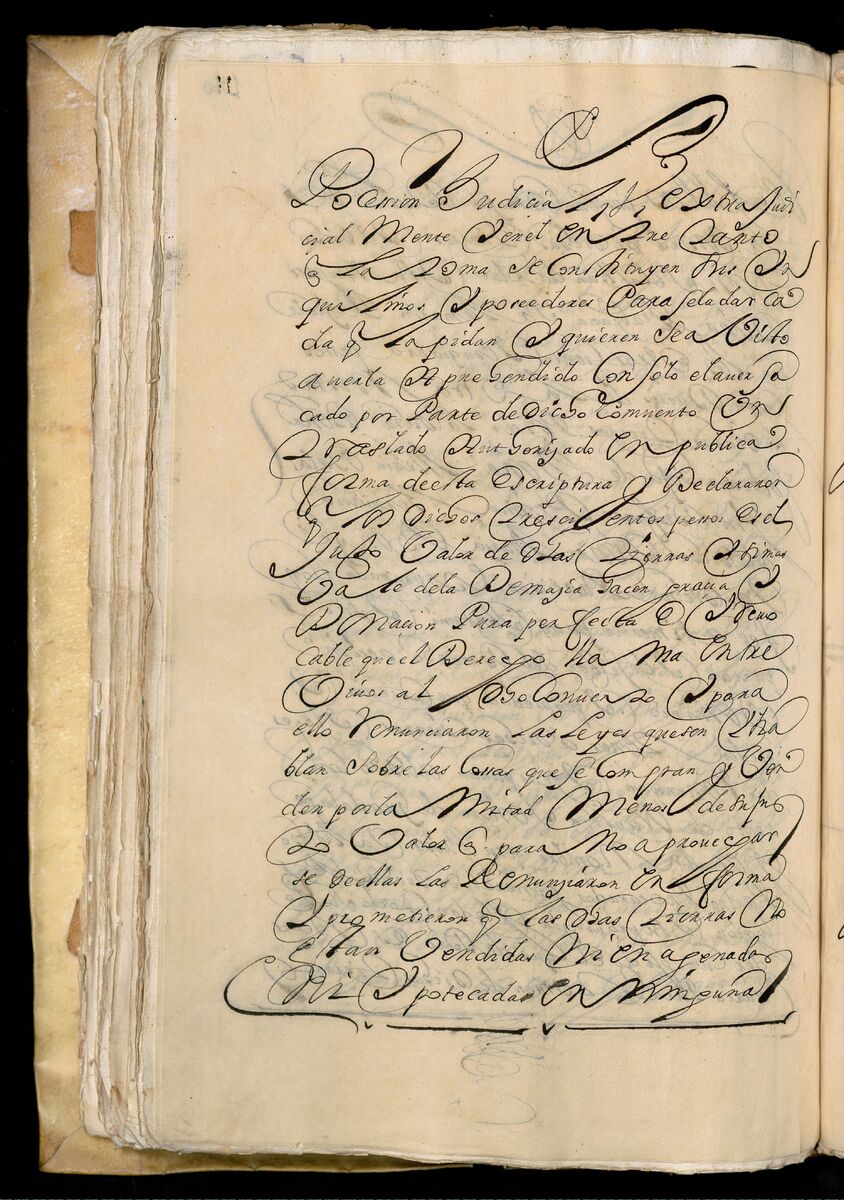 Possession Judicial y extra Judi
cial Mente Y en el Entre tanto
q La toma se Constituyen sus In
quilinos Y poseedores Para sela dar ca
da q La pidan Y quieren sea Visto
averla Aprehendido Con solo el aver sa
cado por Parte de Dicho Comvento Un
traslado Authorizado En publica
forma de esta Escriptura y Declararon
q los Dichos trescientos pessos es el
Justo Valor de dhas tierras Y si mas
Vale de la Demasia hacen gracia Y
Donacion Pura perfecta E Yrevo
cable que el Derecho llama Entre
Vivos al dho Convento Y para
ello Renunciaron Las Leyes que sen tra
blan Sobre las Cossas que se Compran y Ven
den por la Mitad Menos de su jus
to Valor q para No aprovechar
se de ellas Las Renunziaron En forma
Y prometieron q las dhas tierras No
estan Vendidas Ni Enagenadas
Ni Ypotecadas En Ninguna